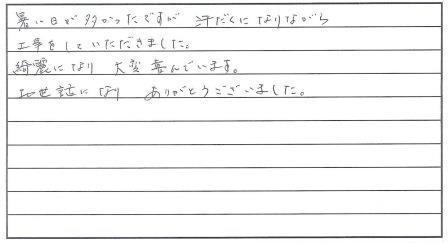 暑い日が多かったですが 汗だくになりながら
工事をしていただきました。
綺麗になり 大変喜んでいます。
お世話になり ありがとうございました。